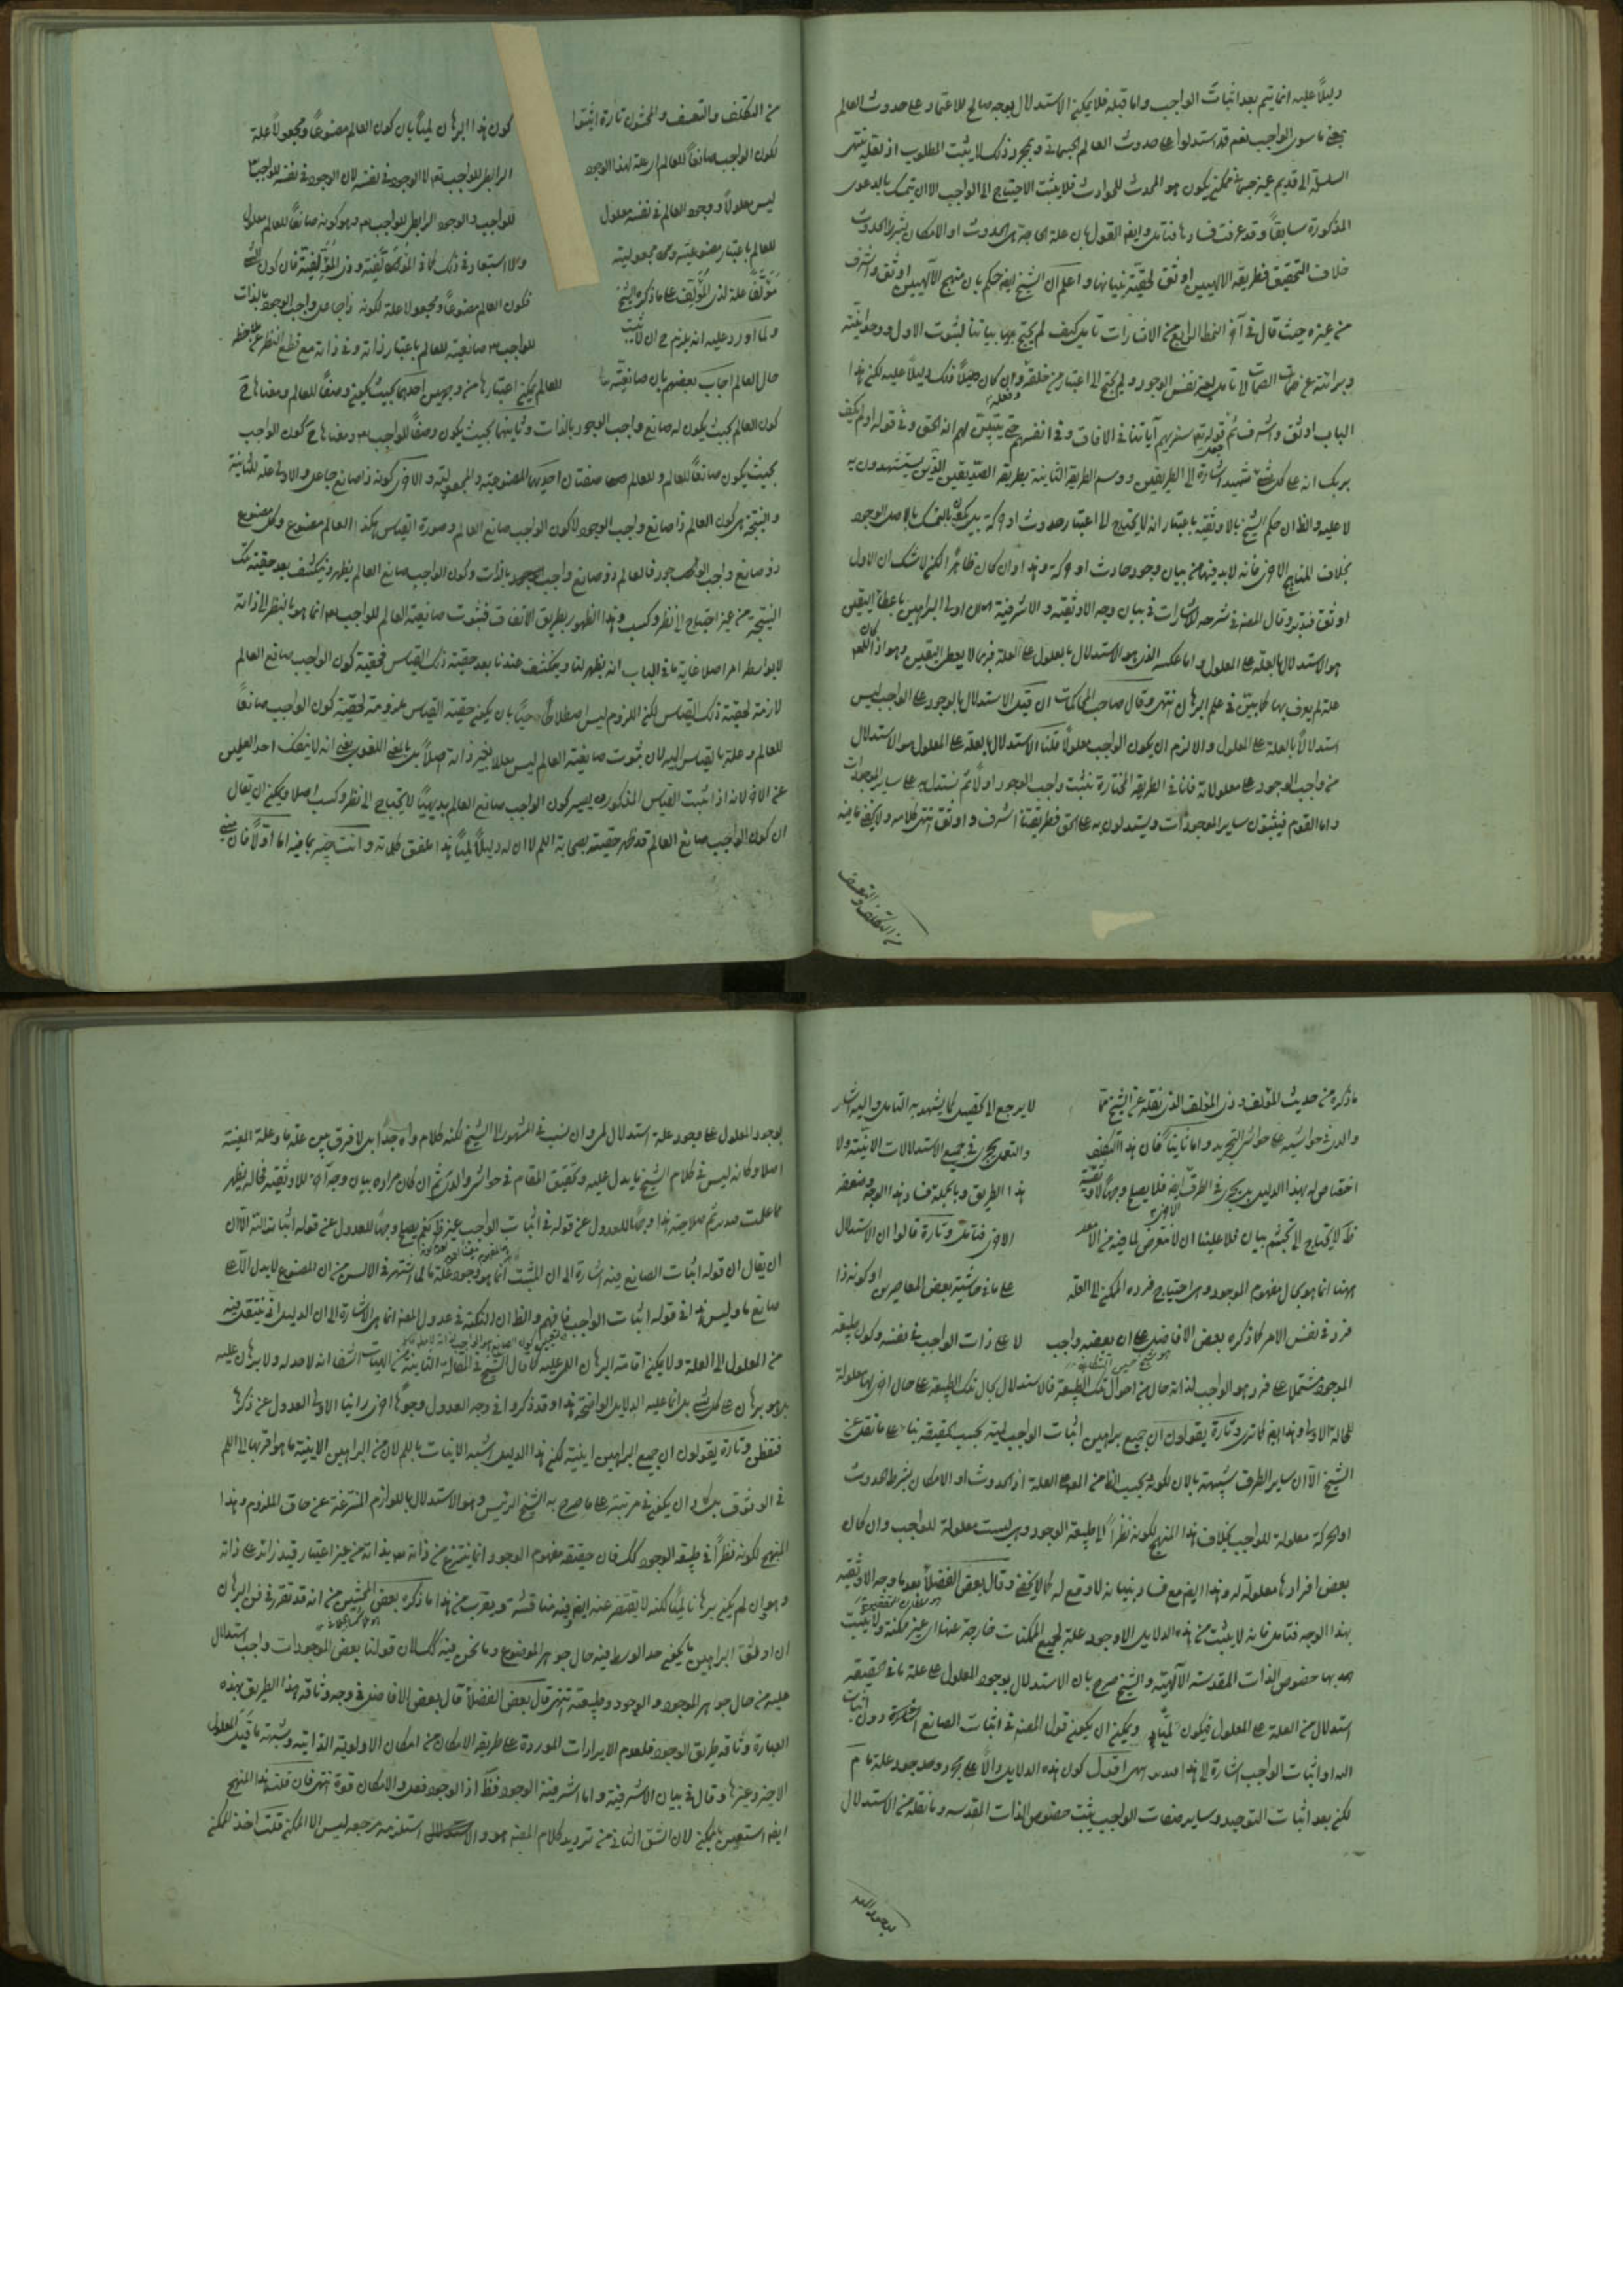 دليلاً عليه انما يتم بعد اثبات الواجب واما قبله فلا يمكن الاستدلال بوجه صالح للاعتماد على حدوث العالم
بمعنى ما سوى الواجب نعم قد استدلوا على حدوث العالم الجسماني وبمجرد ذلك لا يثبت المطلوب اذ لعله ينتهى
السلسلة الى قديم غير جسماني ممكن يكون هو المحدث للحوادث فلا يثبت الاحتياج الى الواجب الا ان يتمسك بالدعوى
المذكورة سابقاً وقد عرفت فسادها فتامل وايضا القول بان علة الحاجة هى الحدوث او الامكان بشرط الحدوث
خلاف التحقيق فطريقة الالهيين اوثق لحقية بنيانها واعلم ان الشيخ ايضا حكم بان منهج الآلهيين اوثق واشرف
من غيره حيث قال فى آخر النمط الرابع من الاشارات تامل كيف لم يحتج بيانا لثبوت الاول ووحدانيته
وبراءته عن الصمات الى تامل لغير نفس الوجود ولم يحتج الى اعتبار من خلقه وفعله وان كان ذلك دليلاً عليه لكن هذا
الباب اوثق واشرف ثم قوله تعالى سنريهم آياتنا فى الافاق وفى انفسهم حتى يتبين لهم انه الحق وفى قوله اولم يكف
بربك انه على كل شئ شهيد اشارة الى الطريقين ووسم الطريقة الثانية بطريقة الصديقين الذين يستشهدون به
لا عليه والظ ان حكم الشيخ بالاوثقية باعتبار انه لا يحتاج الى اعتبار حدوث او حركة بل يكون بالتمسك باصل الوجود
بخلاف المناهج الاخرى فانه لابد فيها من بيان وجود حادث او حركة وهذا وان كان ظاهراً لكن لا شك ان الاول
اوثق فتدبر وقال المصنف فى شرحه للاشارات فى بيان وجه الاوثقية والاشرفية لان اولى البراهين باعطاء اليقين
هو الاستدلال بالعلة على المعلول واما عكسه الذى هو الاستدلال بالمعلول على العلة فربما لا يعطى اليقين وهو اذا كان للمط
علة لم يعرف بها كما بين فى علم البرهان انتهى وقال صاحب المحاكمات ان قيل الاستدلال بالوجود على الواجب ليس
استدلالاً بالعلة على المعلول والا لزم ان يكون الواجب معلولاً قلنا الاستدلال بالعلة على المعلول هو الاستدلال
من واجب الوجود على معلولاته فانا فى الطريقة المختارة نثبت واجب الوجود اولاً ثم نستدل به على سائر الموجودات
واما القوم فيثبتون سائر الموجودات ويستدلون به على الحق فطريقتنا اشرف واوثق انتهى كلامه ولا يخفى ما فيه
من التكلف والتعسف
من التكلف والتعسف والمحشون تارة اثبتوا كون هذا البرهان لمياً بان كون العالم مصنوعاً ومجعولاً علة
لكون الواجب صانعاً للعالم اى علة لهذا الوجود الرابطى للواجب تعالى لا الوجود فى نفسه لان الوجود فى نفسه للواجب
ليس معلولاً ووجود العالم فى نفسه معلول للواجب والوجود الرابطى للواجب وهو كونه صانعاً للعالم معلول
للعالم باعتبار مصنوعيته ومجعوليته ولا استبعاد فى ذلك كما فى المؤلَّفية وذى المؤلِّفية فان كون الشئ
مؤلَّفاً علة لذى المؤلِّف على ما ذكره الشيخ فكون العالم مصنوعاً ومجعولاً علة لكونه ذا جاعل واجب الوجود بالذات
ولما اورد عليه انه يلزم ح ان لا يثبت للواجب صانعيته للعالم باعتبار ذاته وفى ذاته مع قطع النظر عن ملاحظة
حال العالم اجاب بعضهم بان صانعيته للعالم يمكن اعتبارها من وجهين احدهما بحيث يكون وصفاً للعالم ومعناها ح
كون العالم بحيث يكون له صانع واجب الوجود بالذات وثانيهما بحيث يكون وصفاً للواجب ومعناها ح كون الواجب
بحيث يكون صانعاً للعالم وللعالم صفتان احديهما المصنوعية والمجعولية والاخرى كونه ذا صانع جاعل والاولى علة للثانية
والنتيجة هى كون العالم ذا صانع واجب الوجود لا كون الواجب صانع العالم وصورة القياس هكذا العالم مصنوع وكل مصنوع
ذو صانع واجب الوجود فالعالم ذو صانع واجب الوجود بالذات وكون الواجب صانع العالم يظهر وينكشف بعد حقية تلك
النتيجة من غير احتياج الى نظر وكسب وهذا الظهور بطريق الاتفاق فثبوت صانعية العالم للواجب انما هو بالنظر الى ذاته
لا بواسطة امر اصلا غاية ما فى الباب انه يظهر لنا وينكشف عندنا بعد حقية ذلك القياس فحقية كون الواجب صانع العالم
لازمة لحقية ذلك القياس لكن اللزوم ليس اصطلاحياً بان يكون حقية القياس ملزومة لحقية كون الواجب صانعاً
للعالم وعلة بالقياس اليه لان ثبوت صانعية العالم ليس معللا بغير ذاته اصلاً بل بالمعنى اللغوى يعنى انه لا ينفك احد العلمين
عن الاخر لانه اذا ثبت القياس المذكور يصير كون الواجب صانع العالم بديهياً لا يحتاج الى نظر وكسب اصلا ويمكن ان يقال
ان كون الواجب صانع العالم قد ظهر حقيته بصحابة اللم لا ان له دليلاً لمياً هذا عمق كلماته وانت خبير بما فيه اما اولاً فان مبنى
ما ذكره من حديث المؤلف وذى المؤلف الذى نقله عن الشيخ مما لا يرجع الى تحصيل كما يشهد به التامل واليه اشار
والدى فى حواشيه على حواشى التجريد واما ثانياً فان هذا التكلف والتعمل يجرى فى جميع الاستدلالات الانية ولا
اختصاص له بهذا الدليل بل يجرى فى الطرق الاخرى ايضا فلا يصلح وجهاً لاوثقية هذا الطريق وبالجملة فساد هذا الوجه وضعفه
ظ لا يحتاج الى تجشم بيان فلا علينا ان لا نتعرض لما فيه من الاخرى فتامل وتارة قالوا ان الاستدلال
ههنا انما هو بحال مفهوم الموجود وهى احتياج فرده الممكن الى العلة على ما فى حاشية بعض المعاصرين او كونه ذا
فرد فى نفس الامر كما ذكره بعض الافاضل على ان بعضه واجب لا على ذات الواجب فى نفسه وكون طبيعة
الموجود مشتملا على فرد هو الواجب لذاته حال من احوال تلك الطبيعة فالاستدلال بحال تلك الطبيعة على حال اخرى لها معلولة
للحالة الاولى وهذا ايضا كما ترى وتارة يقولون ان جميع براهين اثبات الواجب لمية بحسب الحقيقة بناء على ما نقل عن
الشيخ الا ان سائر الطرق شبيهة بالان لكونه بحسب الظ من المعلول الى العلة اذ الحدوث او الامكان بشرط الحدوث
او الحركة معلولة للواجب بخلاف هذا المنهج لكونه نظراً الى طبيعة الوجود وهى ليست معلولة للواجب وان كان
بعض افرادها معلولة له وهذا ايضا مع فساد بنيانه لا وقع له كما لا يخفى وقال بعض الفضلاء بعد ما وجه الاوثقية
بهذا الوجه فتامل فانه لا يثبت من هذه الدلايل الا وجود علة لجميع الممكنات خارجة عنها اى غير ممكنة ولا يثبت
بها خصوص الذات المقدسة الآلهية والشيخ صرح بان الاستدلال بوجود المعلول على علة ما فى الحقيقة
استدلال من العلة على المعلول فيكون لمياً ويمكن ان يكون قول المصنف فى اثبات الصانع اشارة دون اثبات
الله او اثبات الواجب اشارة الى هذا اقول كون هذه الدلايل دالا على مجرد وجود علة ما م
لكن بعد اثبات التوحيد وسائر صفات الواجب يثبت خصوص الذات المقدسه وما نقله من الاستدلال
بوجود المعلول
بوجود المعلول على وجود علة استدلال لمى وان نسب فى المشهور الى الشيخ لكنه كلام واه جداً اذ لا فرق بين علة ما وعلة معينة
اصلا وكانه ليس فى كلام الشيخ ما يدل عليه وتحقيق المقام فى حواشى والدى ثم ان كان مراده بيان وجه آخر للاوثقية فحاله يظهر
مما علمت ثم صلاحية هذا وجهاً للعدول عن قوله فى اثبات الواجب غير ظ كيف يصلح وجهاً للعدول عن قوله اثباته تعالى الا ان
ان يقال ان قوله اثبات الصانع فيه اشارة الى ان المثبت انما هو وجود علة ما لما اشتهر فى الالسن من ان المصنوع لا يدل الا على
صانع ما وليس هذا فى قوله اثبات الواجب فافهم والظ ان النكتة فى عدول المصنف انما هى الاشارة الى ان الدليل انى ينتقل فيه
من المعلول الى العلة ولا يمكن اقامة البرهان اللمى عليه كما قال الشيخ فى المقالة الثانية من الهيات الشفا انه لا حد له ولا برهان عليه
بل هو برهان على كل شئ بل انما عليه الدلايل الواضحة هذا وقد ذكروا فى وجه العدول وجوهاً اخرى راينا الاولى العدول عن ذكرها
فتفطن وتارة يقولون ان جميع البراهين انية لكن هذا الدليل اشبه الانيات باللم لان من البراهين الانية ما هو اقربها الى اللم
فى الوثوق بل كاد ان يكون فى مرتبته على ما صرح به الشيخ الرئيس وهو الاستدلال باللوازم المنتزعة عن حاق الملزوم وهذا
المنهج لكونه نظراً فى طبيعة الوجود كك فان حقيقة مفهوم الوجود انما ينتزع من ذاته بذاته من غير اعتبار قيد زائد على ذاته
وهو ان لم يكن برهاناً لمياً لكنه لا يقصر عنه ايضا وفيه مناقشة ويقرب من هذا ما ذكره بعض المحشين من انه قد تقرر فى فن البرهان
ان اوثق البراهين ما يكون حد الوسط فيه حال جوهر الموضوع وما نحن فيه كك لان قولنا بعض الموجودات واجب استدلال
عليه من حال جوهر الموجود والوجود وطبيعته انتهى قال بعض الفضلاء قال بعض الافاضل فى وجه وثاقة هذا الطريق بهذه
العبارة وثاقة طريق الوجود فلعدم الايرادات الموردة على طريقة الامكان من امكان الاولوية الذاتية وشبهة ما قبل المعلول
الاخير وغيرها وقال فى بيان الاشرفية واما اشرفية الوجود فظ اذ الوجود فعل والامكان قوة انتهى فان قلت هذا المنهج
ايضا استعين بالممكن لان الشق الثانى من ترديد كلام المصنف هو والا استلزمه مرجعه ليس الا الممكن قلت اخذ الممكن